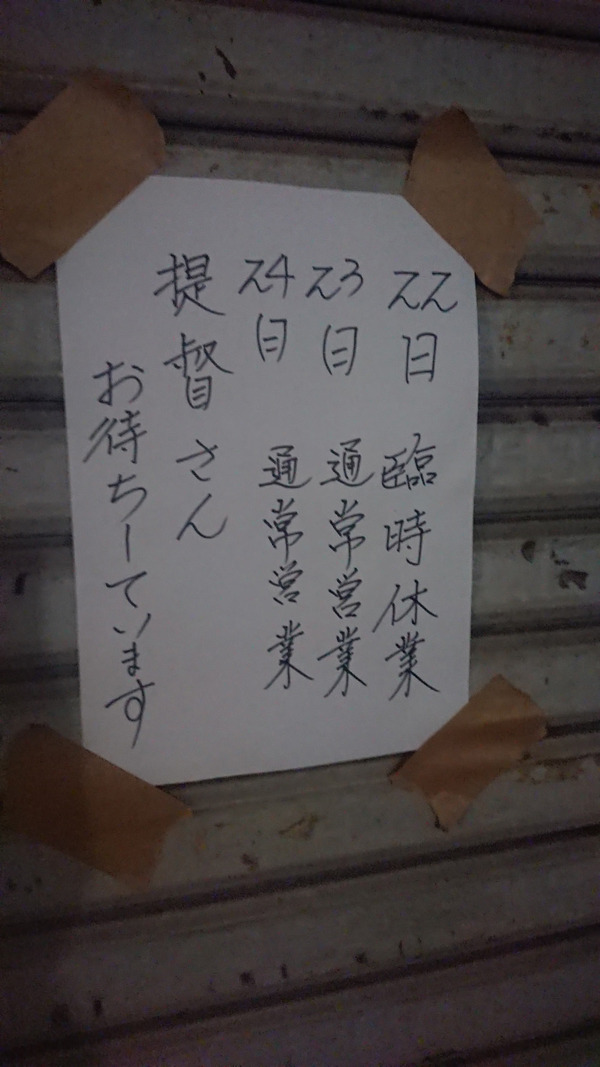 22日 臨時休業
23日 通常営業
24日 通常営業
提督さん
お待ちしています